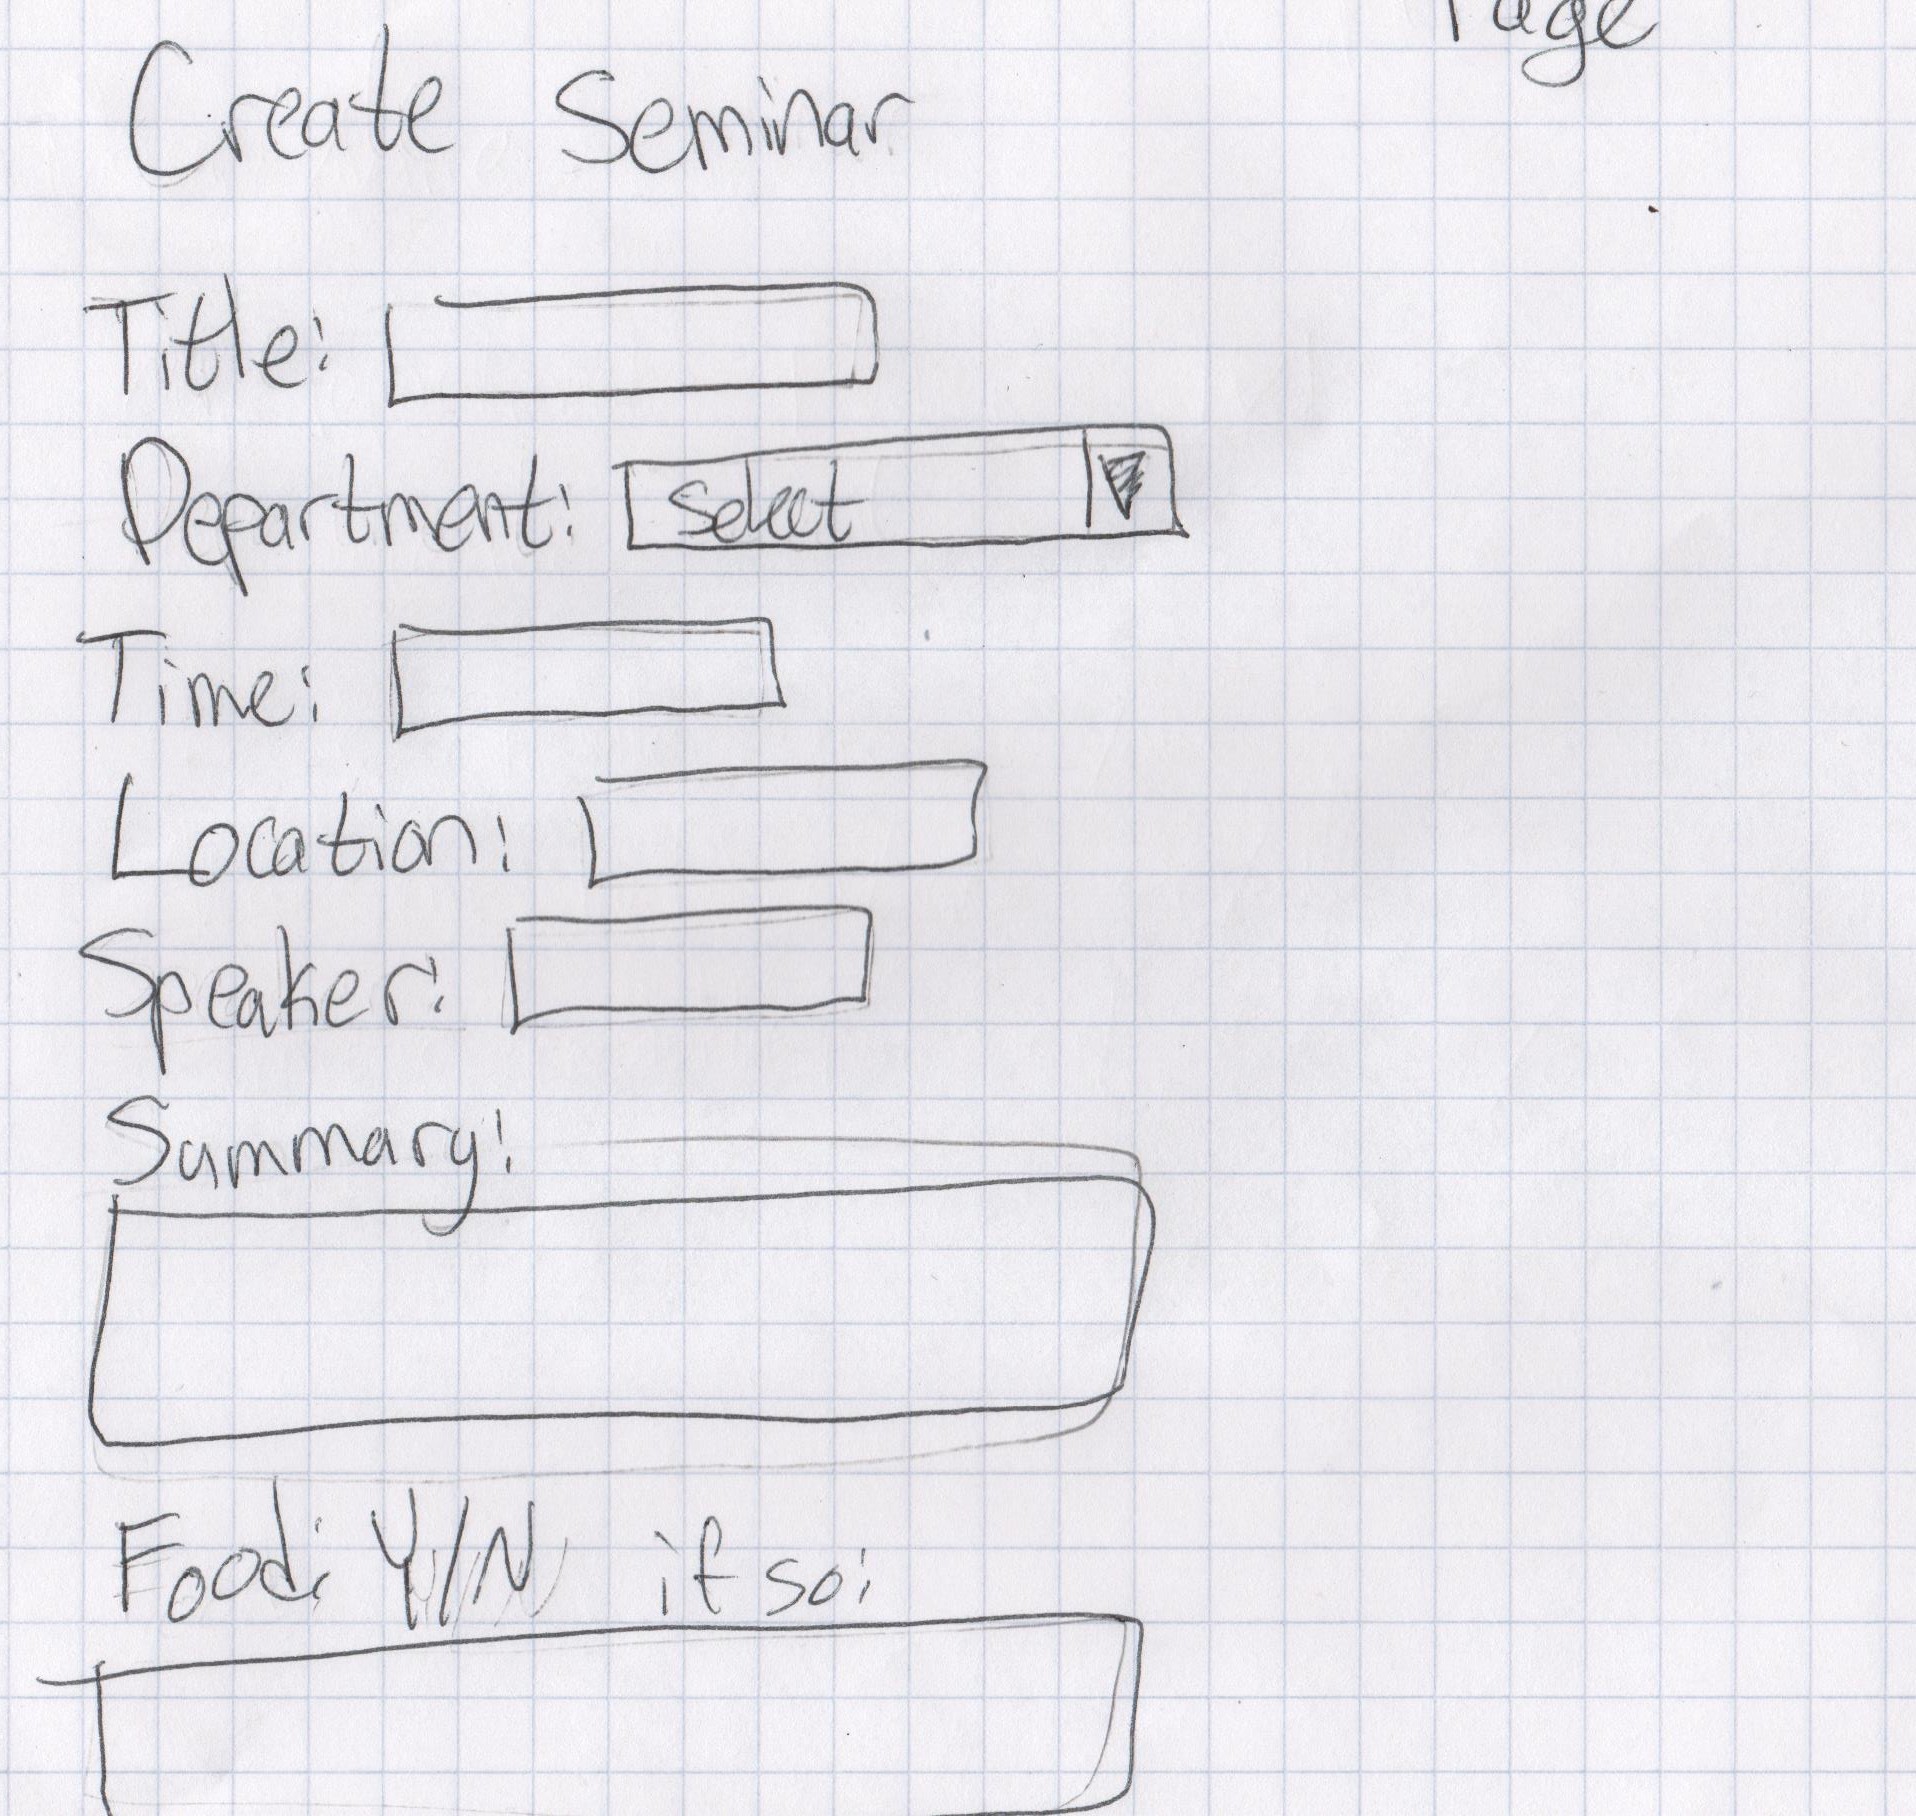 Page
Create Seminar
Title:
Department: Select
Time:
Location:
Speaker:
Summary:
Food: Y/N if so: